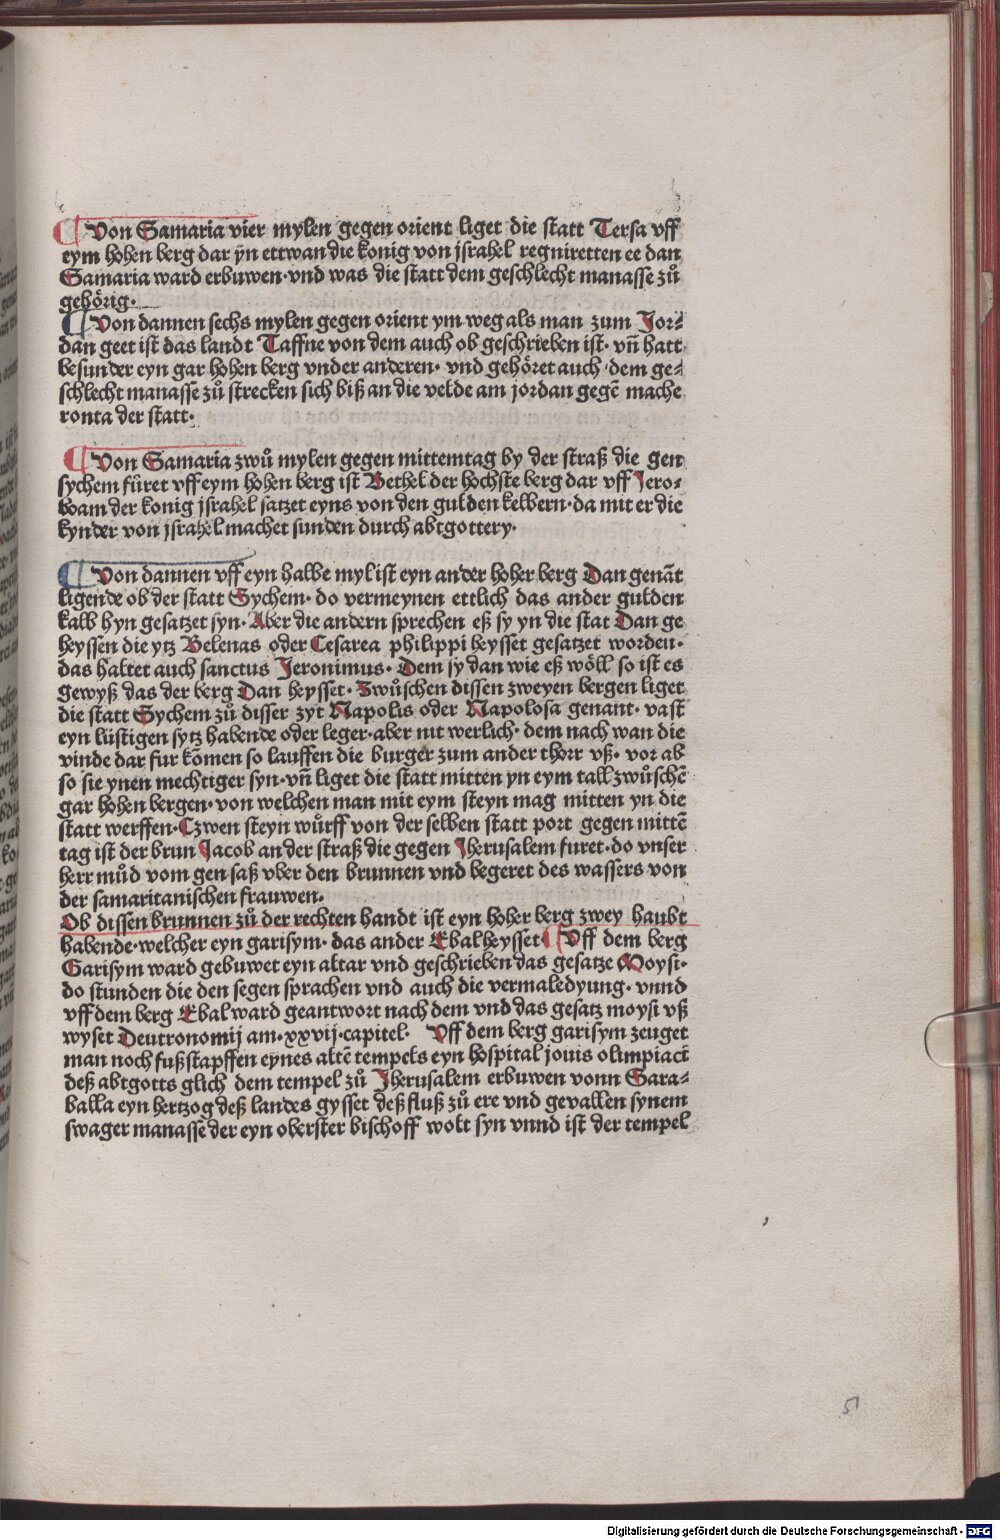 ¶ Von Samaria vier mylen gegen orient liget die statt Tersa vff
eym hohen berg dar ÿn ettwan die konig von jsrahel regniretten ee dan
Samaria ward erbuwen· vnd was die statt dem geschlecht manasse zů
gehörig·
¶ Von dannen sechs mylen gegen orient ym weg als man zum Jor⸗
dan geet ist das landt Taffne von dem auch ob geschrieben ist· vñ hatt
besunder eyn gar hohen berg vnder anderen· vnd gehöret auch dem ge⸗
schlecht manasse zů strecken sich biß an die velde am jordan gegē mache
ronta der statt·
¶ Von Samaria zwů mylen gegen mittemtag by der straß die gen
sychem fůret vff eym hohen berg ist Bethel der hochste berg dar vff Jero⸗
boam der konig jsrahel satzet eyns von den gulden kelbern· da mit er die
kynder von jsrahel machet sunden durch abtgottery·
¶ Von dannen vff eyn halbe myl ist eyn ander hoher berg Dan genāt
ligende ob der statt Sychem· do vermeynen ettlich das ander gulden
kalb hyn gesatzet syn· Aber die andern sprechen eß sy yn die stat Dan ge
heyssen die ytz Belenas oder Cesarea philippi heysset gesatzet worden·
das haltet auch sanctus Jeronimus· Dem sy dan wie eß wöll so ist es
gewyß das der berg Dan heysset· Zwůschen dissen zweyen bergen liget
die statt Sychem zů disser zyt Napolis oder Napolosa genant· vast
eyn lůstigen sytz habende oder leger· aber nit werlich· dem nach wan die
vinde dar fur kōmen so lauffen die burger zum ander thorr vß· vor ab
so sie ynen mechtiger syn· vñ liget die statt mitten yn eym tall zwůschē
gar hohen bergen· von welchen man mit eym steyn mag mitten yn die
statt werffen· Czwen steyn wůrff von der selben statt port gegen mittē
tag ist der brun Jacob an der straß die gegen Jherusalem furet· do vnser
herr můd vom gen saß vber den brunnen vnd begeret des wassers von
der samaritanischen frauwen·
Ob dissen brunnen zů der rechten handt ist eyn hoher berg zwey haubt
habende· welcher eyn garisym· das ander Ebal heysset ¶ Vff dem berg
Garisym ward gebuwet eyn altar vnd geschrieben das gesatze Moysi·
do stunden die den segen sprachen vnd auch die vermaledyung· vnnd
vff dem berg Ebal ward geantwort nach dem vnd das gesatz moysi vß
wyset Deutronomij am· xxvij· capitel· Vff dem berg garisym zeuget
man noch fußstapffen eynes altē tempels eyn hospital jouis olimpiaci
deß abtgotts glich dem tempel zů Jherusalem erbuwen vonn Sara⸗
balla eyn hertzog deß landes gysset deß fluß zů ere vnd gevallen synem
swager manasse der eyn oberster bischoff wolt syn vnnd ist der tempel
51
Digitalisierung gefördert durch die Deutsche Forschungsgemeinschaft · DFG